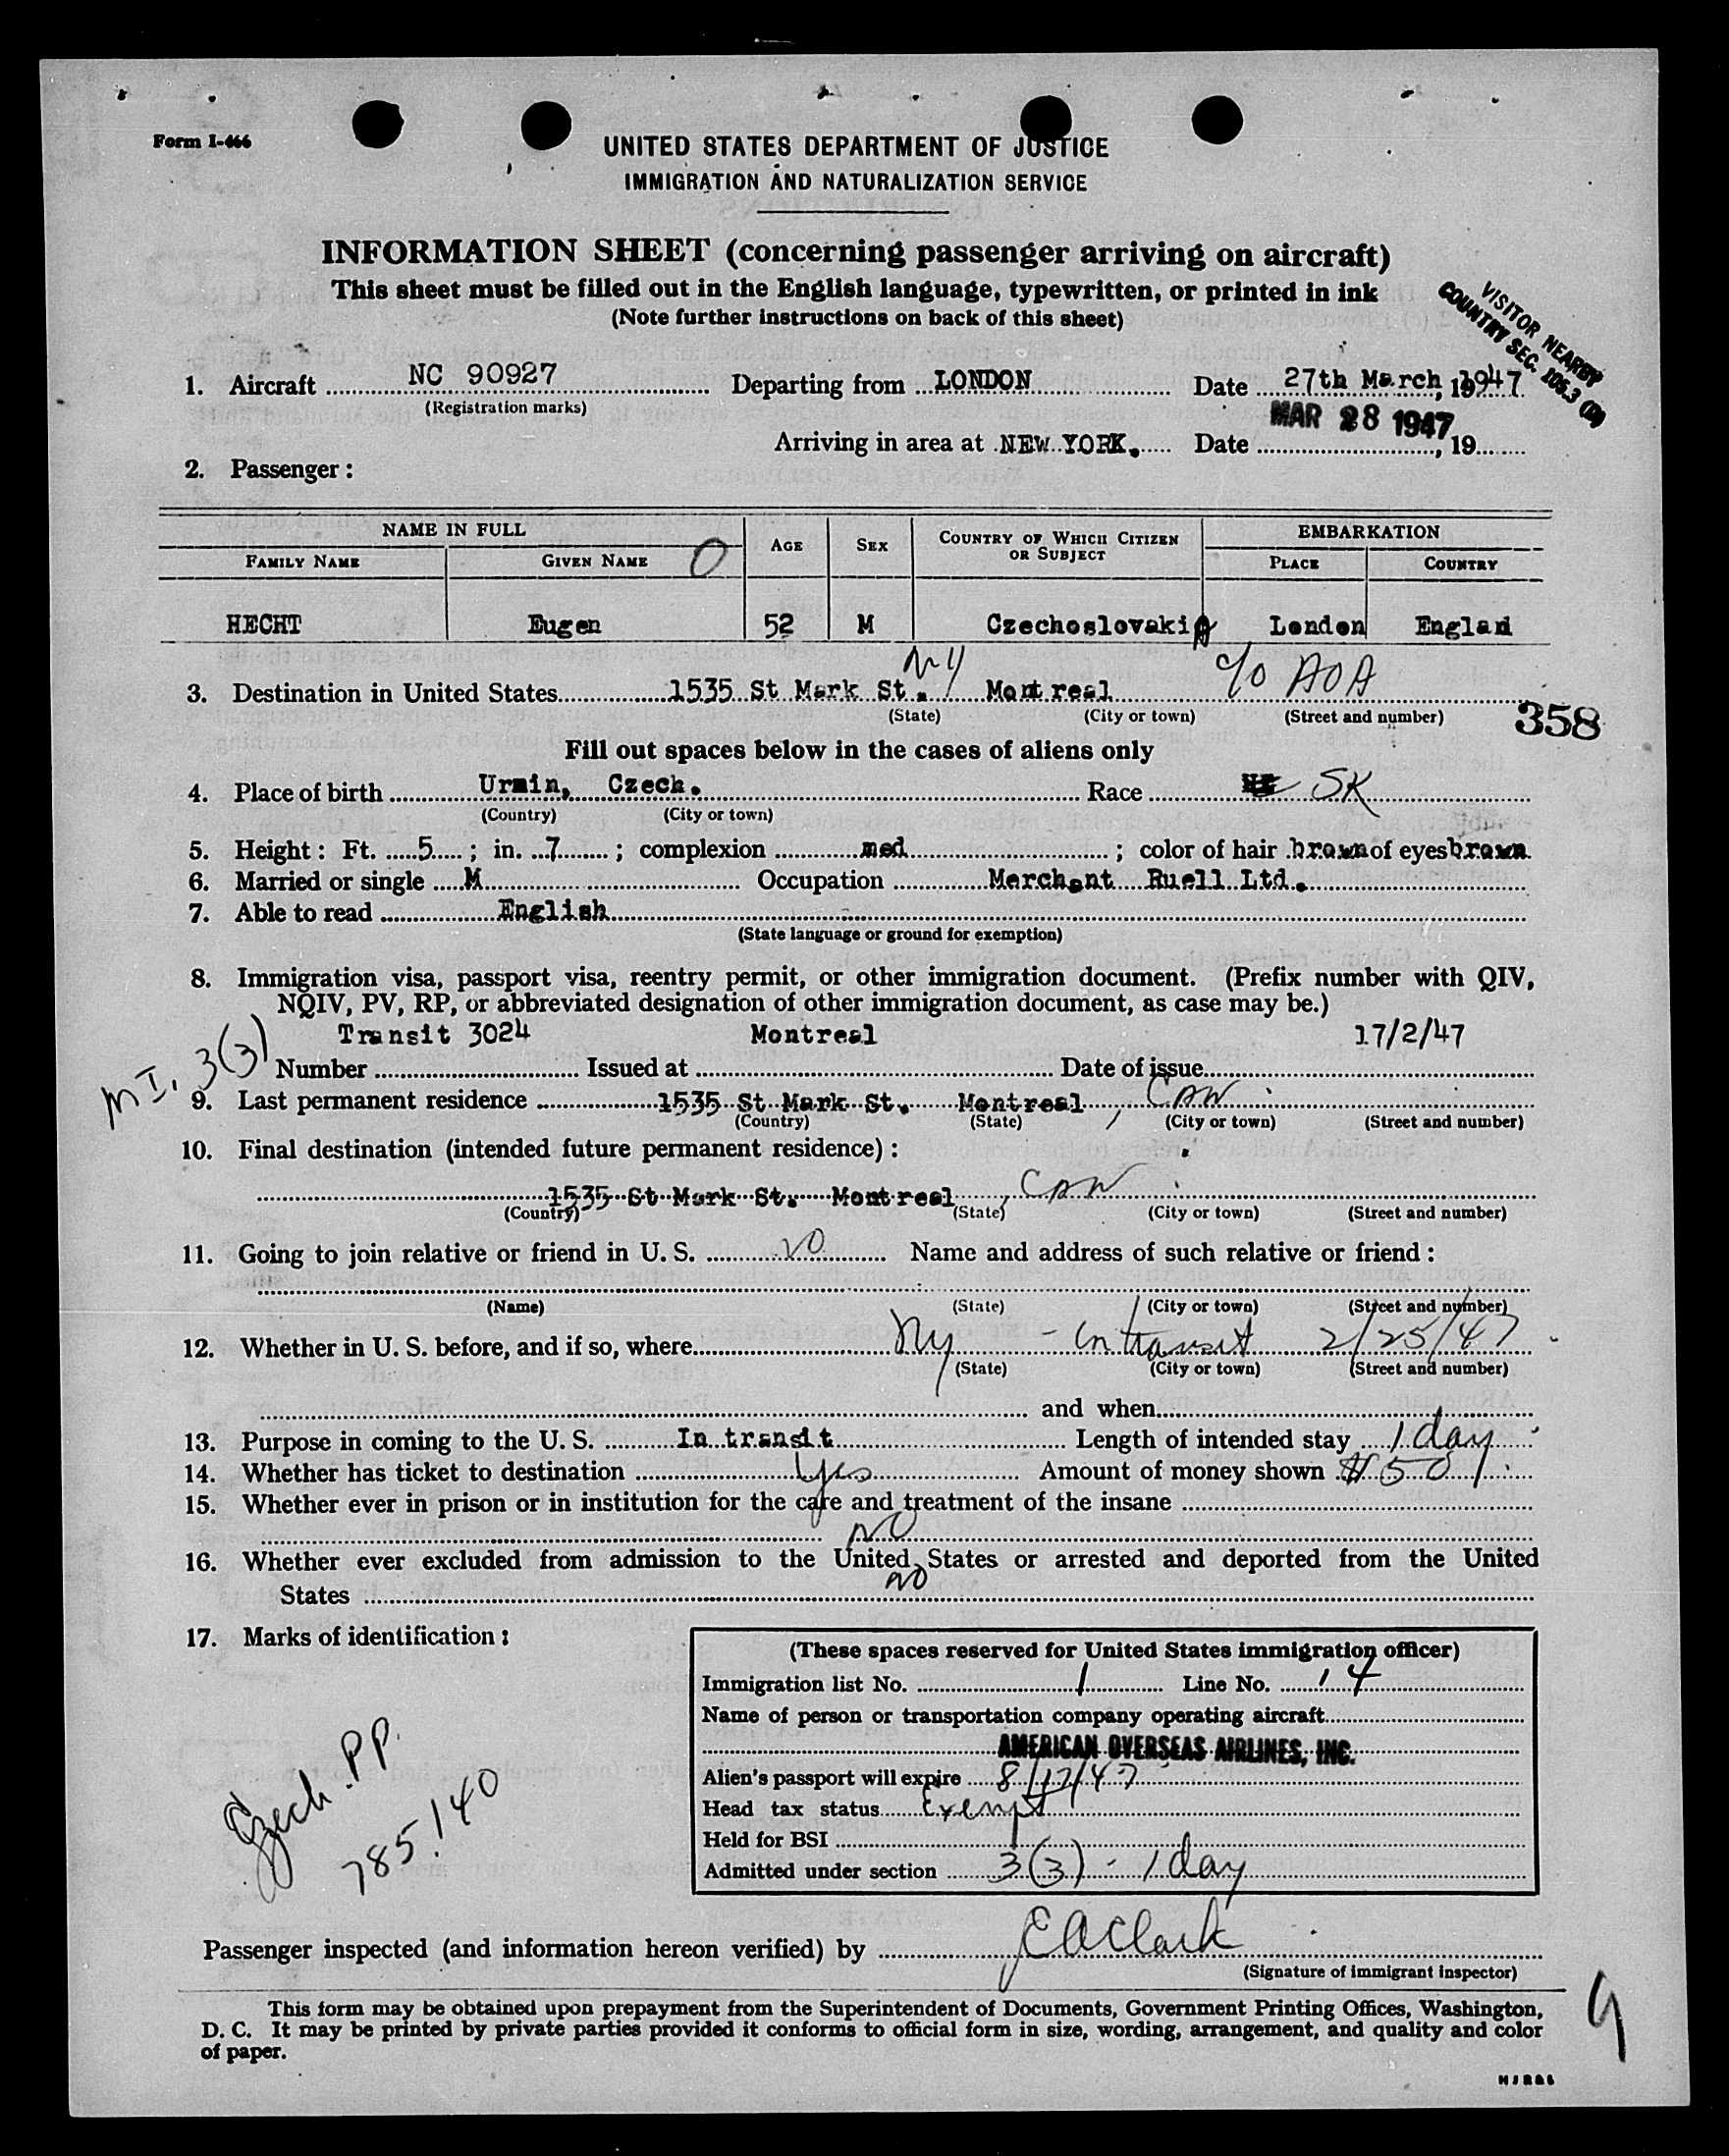 Form I-466
UNITED STATES DEPARTMENT OF JUSTICE
IMMIGRATION AND NATURALIZATION SERVICE
INFORMATION SHEET (concerning passenger arriving on aircraft)
This sheet must be filled out in the English language, typewritten, or printed in ink
(Note further instructions on back of this sheet)
VISITOR NEARBY
COUNTRY SEC. 106.3 (D)
1. Aircraft NC 90927 Departing from LONDON Date 27th March, 1947
(Registration marks)
MAR 28 1947
Arriving in area at NEW YORK. Date , 19
2. Passenger:
NAME IN FULL AGE SEX COUNTRY OF WHICH CITIZEN OR SUBJECT EMBARKATION
FAMILY NAME GIVEN NAME O PLACE COUNTRY
HECHT Eugen 52 M Czechoslovakia London England
NY c/o AOA
3. Destination in United States 1535 St Mark St. Montreal
(State) (City or town) (Street and number)
358
Fill out spaces below in the cases of aliens only
4. Place of birth Urmin, Czech. Race SK
(Country) (City or town)
5. Height: Ft. 5; in. 7; complexion med; color of hair brown of eyes brown
6. Married or single M Occupation Merchant Ruell Ltd.
7. Able to read English
(State language or ground for exemption)
8. Immigration visa, passport visa, reentry permit, or other immigration document. (Prefix number with QIV,
NQIV, PV, RP, or abbreviated designation of other immigration document, as case may be.)
Transit 3024 Montreal 17/2/47
Number Issued at Date of issue
3(3)
9. Last permanent residence 1535 St Mark St. Montreal, CAN
(Country) (State) (City or town) (Street and number)
10. Final destination (intended future permanent residence):
1535 St Mark St. Montreal, CAN
(Country) (State) (City or town) (Street and number)
11. Going to join relative or friend in U. S. NO Name and address of such relative or friend:
(Name) (State) (City or town) (Street and number)
12. Whether in U. S. before, and if so, where NY - in transit 2/25/47
(State) (City or town) (Street and number)
and when
13. Purpose in coming to the U. S. In transit Length of intended stay 1 day
14. Whether has ticket to destination Yes Amount of money shown $50
15. Whether ever in prison or in institution for the care and treatment of the insane
NO
16. Whether ever excluded from admission to the United States or arrested and deported from the United
States NO
17. Marks of identification:
Czech PP.
785140
(These spaces reserved for United States immigration officer)
Immigration list No. 1 Line No. 14
Name of person or transportation company operating aircraft
AMERICAN OVERSEAS AIRLINES, INC.
Alien's passport will expire 8/17/47
Head tax status Exempt
Held for BSI
Admitted under section 3(3) - 1 day
Passenger inspected (and information hereon verified) by EA Clark
(Signature of immigrant inspector)
This form may be obtained upon prepayment from the Superintendent of Documents, Government Printing Offices, Washington,
D. C. It may be printed by private parties provided it conforms to official form in size, wording, arrangement, and quality and color
of paper.
9